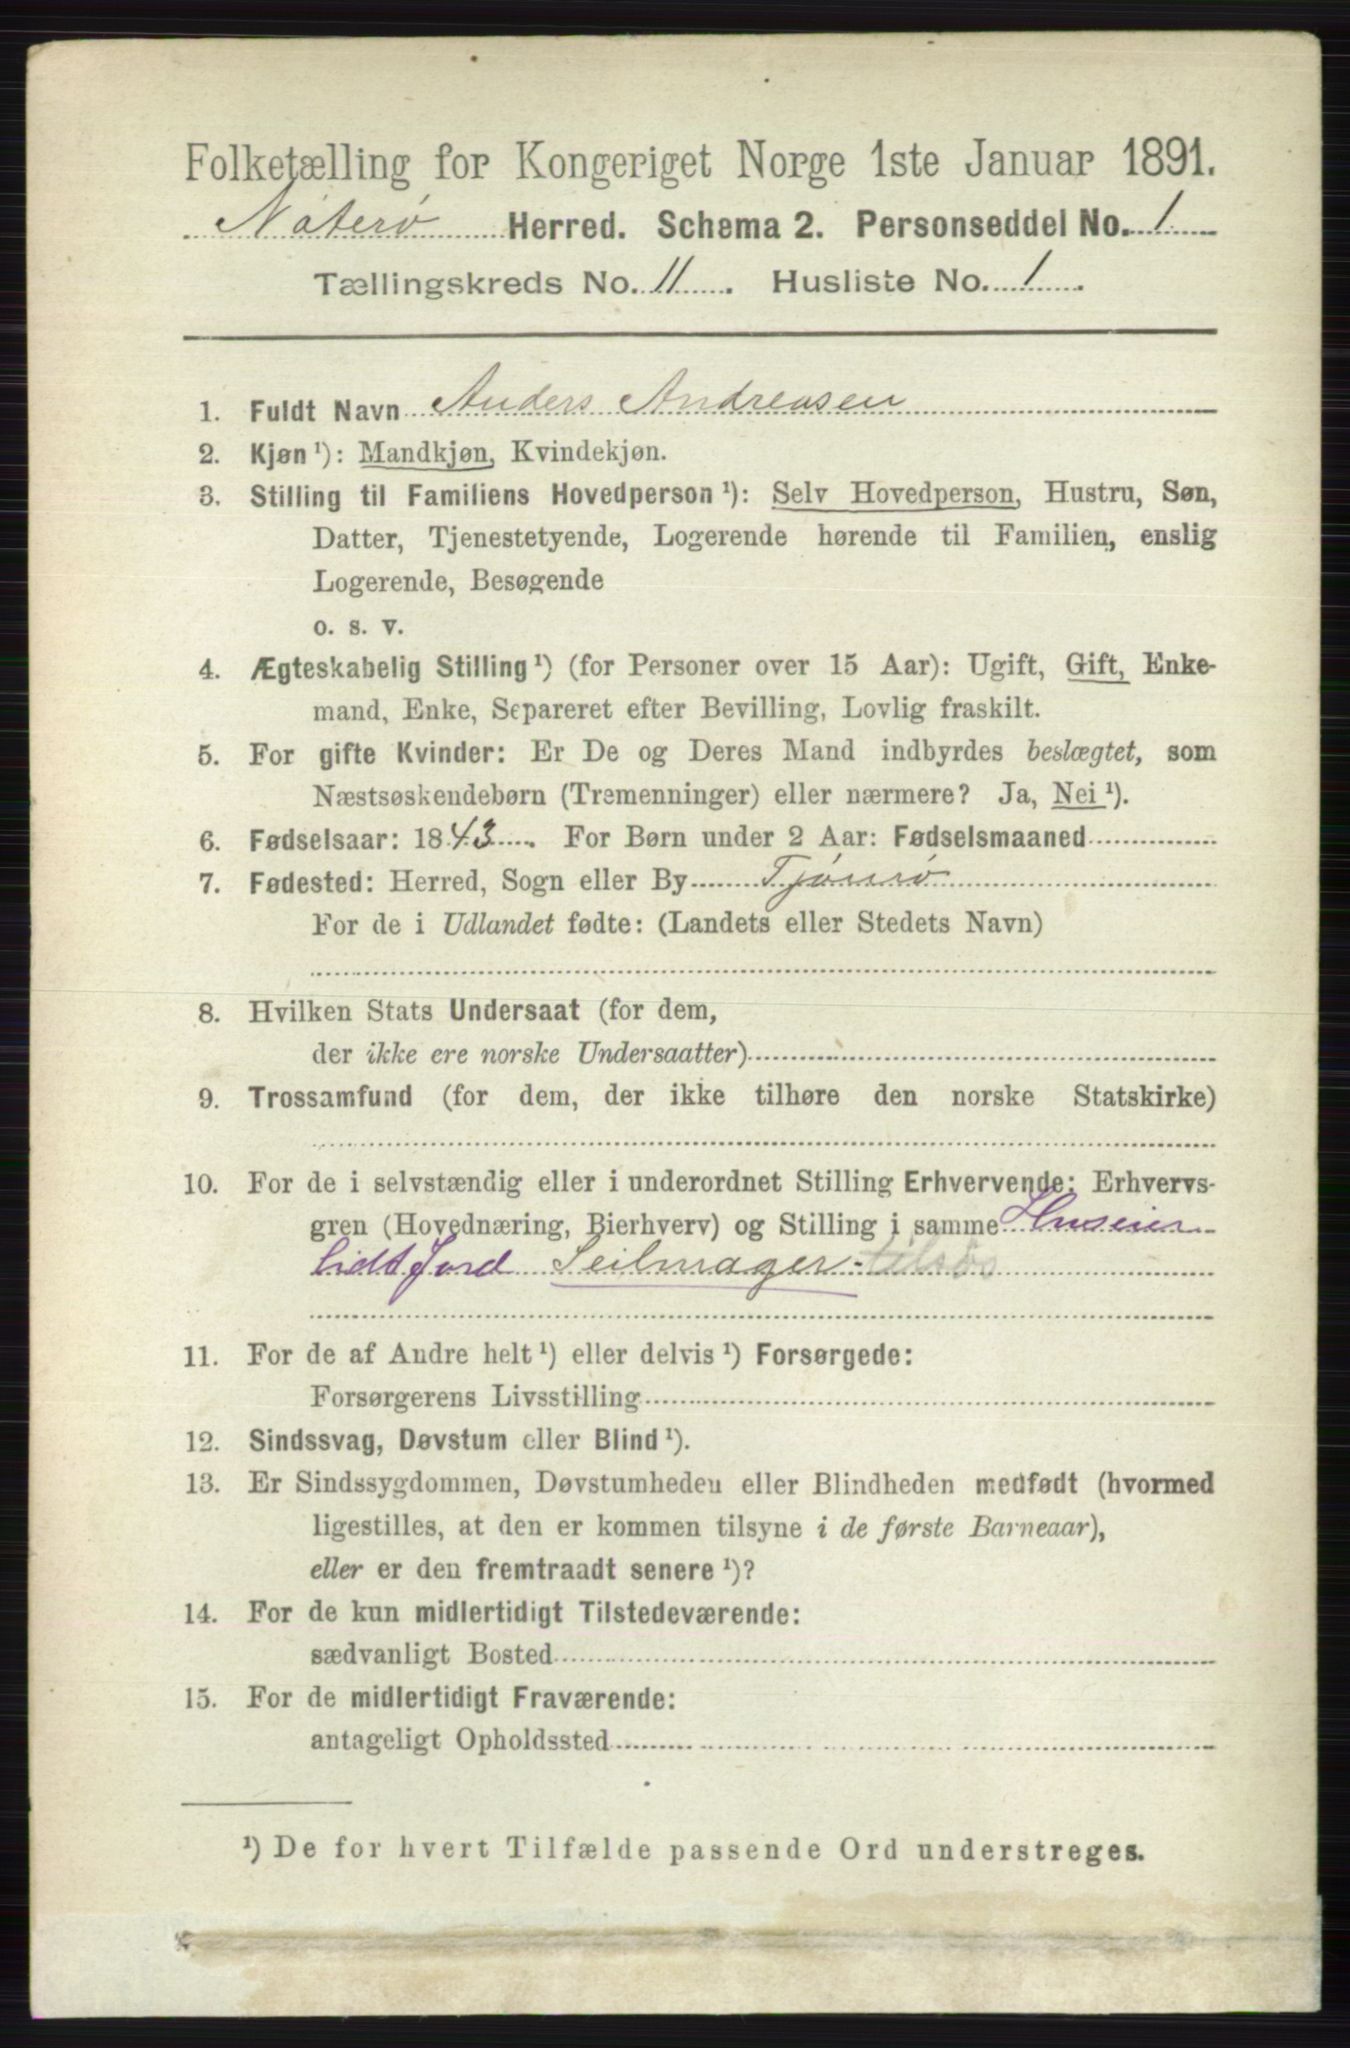 Folketælling for Kongeriget Norge 1ste Januar 1891.
Nøterø Herred. Schema 2. Personseddel No. 1
Tællingskreds No. 11. Husliste No. 1.
1. Fuldt Navn Anders Andreasen
2. Kjøn ¹): Mandkjøn, Kvindekjøn.
3. Stilling til Familiens Hovedperson ¹): Selv Hovedperson, Hustru, Søn,
Datter, Tjenestetyende, Logerende hørende til Familien, enslig
Logerende, Besøgende
o. s. v.
4. Ægteskabelig Stilling ¹) (for Personer over 15 Aar): Ugift, Gift, Enke-
mand, Enke, Separeret efter Bevilling, Lovlig fraskilt.
5. For gifte Kvinder: Er De og Deres Mand indbyrdes beslægtet, som
Næstsøskendebørn (Tremenninger) eller nærmere? Ja, Nei ¹).
6. Fødselsaar: 1843. For Børn under 2 Aar: Fødselsmaaned
7. Fødested: Herred, Sogn eller By Tjømø
For de i Udlandet fødte: (Landets eller Stedets Navn)
8. Hvilken Stats Undersaat (for dem,
der ikke ere norske Undersaatter)
9. Trossamfund (for dem, der ikke tilhøre den norske Statskirke)
10. For de i selvstændig eller i underordnet Stilling Erhvervende: Erhvervs-
gren (Hovednæring, Bierhverv) og Stilling i samme Huseier
lidt Jord Seilmager tilsøs
11. For de af Andre helt ¹) eller delvis ¹) Forsørgede:
Forsørgerens Livsstilling
12. Sindssvag, Døvstum eller Blind ¹).
13. Er Sindssygdommen, Døvstumheden eller Blindheden medfødt (hvormed
ligestilles, at den er kommen tilsyne i de første Barneaar),
eller er den fremtraadt senere ¹)?
14. For de kun midlertidigt Tilstedeværende:
sædvanligt Bosted
15. For de midlertidigt Fraværende:
antageligt Opholdssted
¹) De for hvert Tilfælde passende Ord understreges.